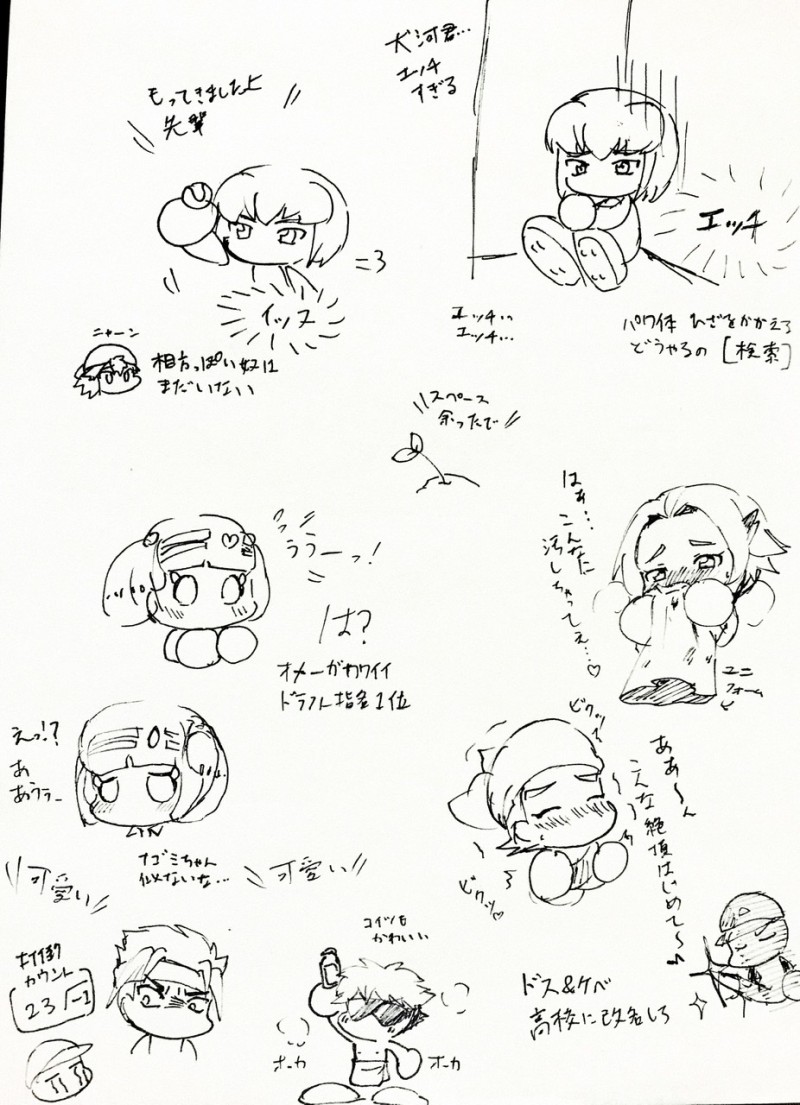 もってきましたよ
先輩
犬河君…
エッチ
すぎる
エッチ
ニャーン
相方っぽい奴は
まだいない
エッチ…
エッチ…
パワ体 ひざをかかえる
どうやるの [検索]
スペース
余ったで
うう一っ!
は?
オメーがカワイイ
ドラフト指名1位
はぁ…こんなに
汚しちゃってぇ…♡
ユニ
フォーム
えっ!?
あ
あうぅ_
ナゴミちゃん
似ないな…
可愛い
可愛い
ビクッ
ビクッ♡
ああ〜ん
こんな絶頂はじめて〜
カウント
23/-1
コイツも
かわいい
オーカ
オーカ
ドス&ケベ
高校に改名しろ